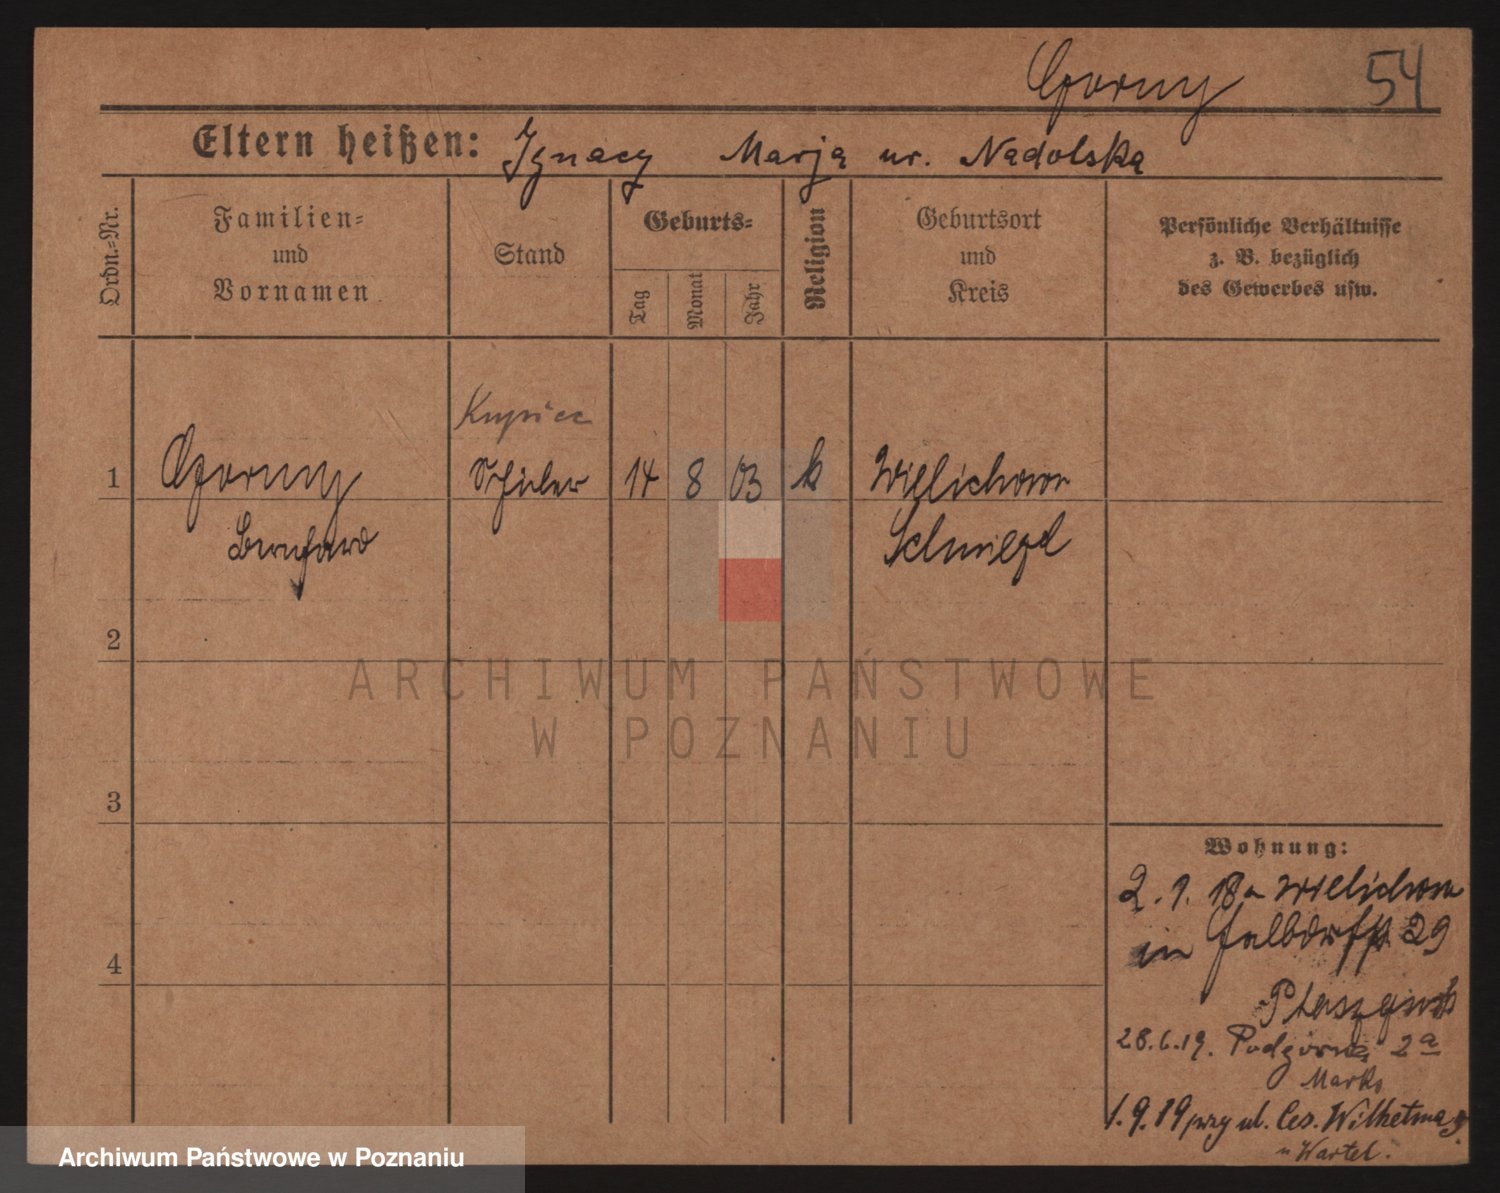 Gorny 54
Eltern heißen: Ignacy Marja ur. Nadolska
Ordn.=Nr.
Familien=
und
Vornamen
Stand
Geburts=
Tag
Monat
Jahr
Religion
Geburtsort
und
Kreis
Persönliche Verhältnisse
z. B. bezüglich
des Gewerbes usw.
Kupiec
1 Gorny Schüler 14 8 03 k Wielichowo
Bernhard Schmiegel
2
ARCHIWUM PAŃSTWOWE
W POZNANIU
3
Wohnung:
2. 9. 18 Wielichowo
in 29
4
28.6.19. Podgórna 2a
1.9.19 przy ul. Ces. Wilhelma
u Wartel.
Archiwum Państwowe w Poznaniu